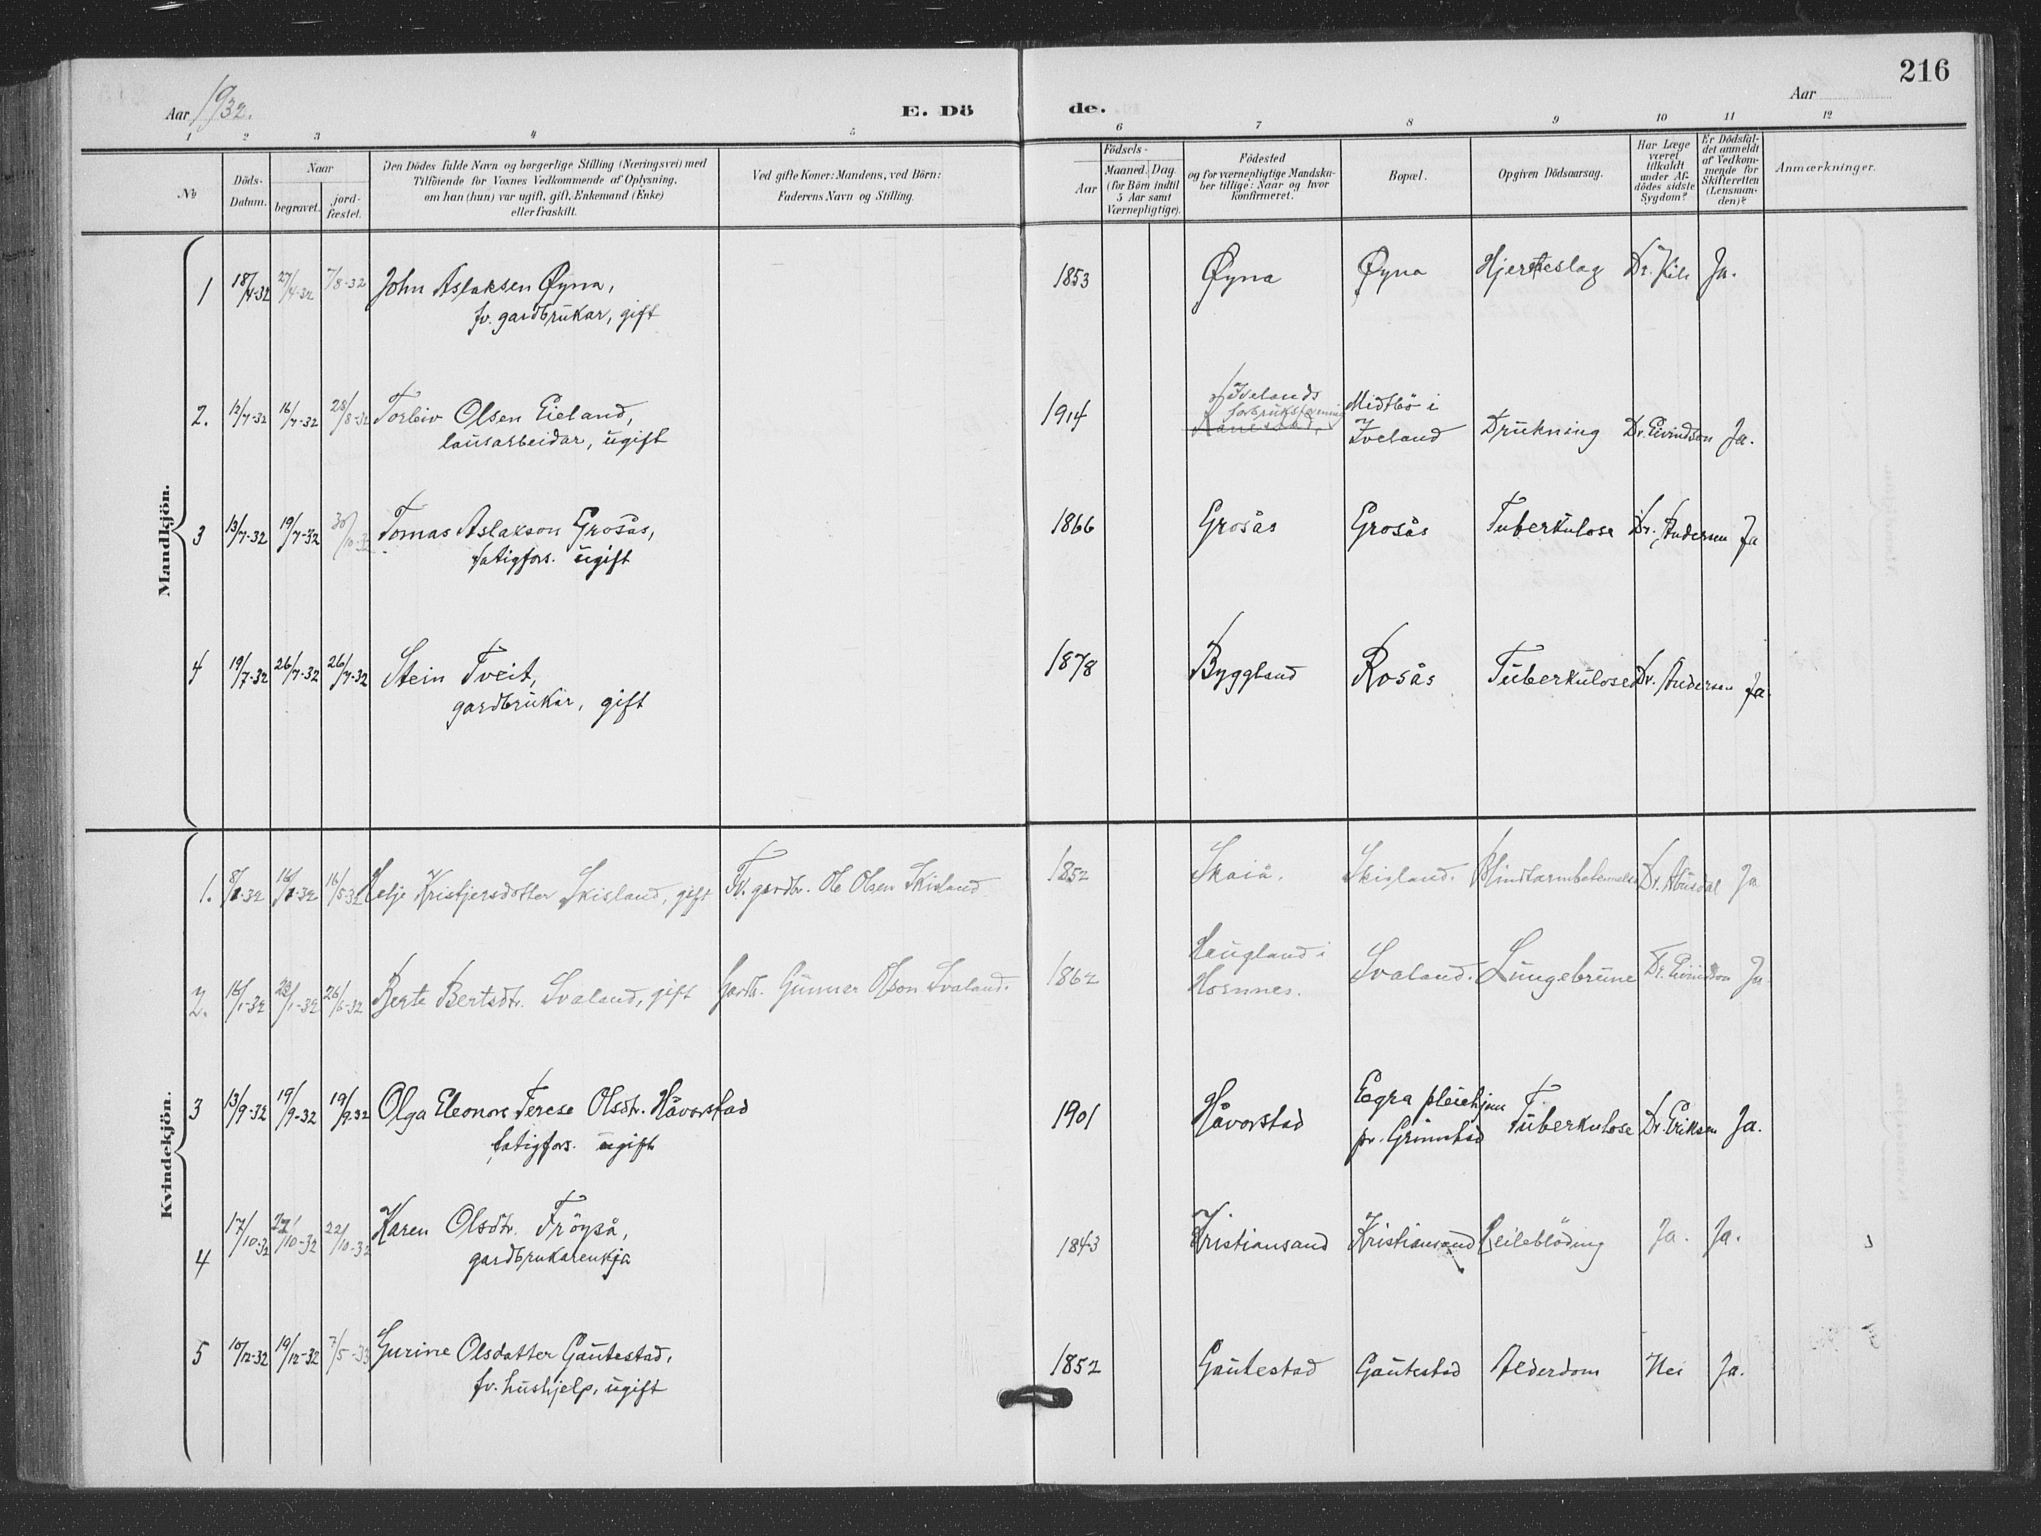 216
Aar 1932.
E. Dö
de.
Aar
1 2 3 4 5 6 7 8 9 10 11 12
No
Döds-
Datum.
Naar
begravet.
jord-
fæstet.
Den Dödes fulde Navn og borgerlige Stilling (Næringsvei) med
Tilföiende for Voxnes Vedkommende af Oplysning,
om han (hun) var ugift, gift, Enkemand (Enke)
eller fraskilt.
Ved gifte Koner: Mandens, ved Börn:
Faderens Navn og Stilling.
Födsels-
Aar
Maaned. Dag
(for Börn indtil
5 Aar samt
Værnepligtige).
Födested
og for værnepligtige Mandska-
ber tillige: Naar og hvor
konfirmeret.
Bopæl.
Opgiven Dödsaarsag.
Har Læge
været
tilkaldt
under Af-
dödes sidste
Sygdom?
Er Dödsfal-
det anmeldt
af Vedkom-
mende for
Skifteretten
(Lensman-
den)?
Anmærkninger.
Mandkjön.
1 18/4-32 27/4-32 7/8-32 John Aslaksen Øyna, 1853 Øyna Øyna Hjerteslag Dr. Ja.
fv. gardbrukar, gift
2. 12/7-32 16/7-32 28/8-32 Torleiv Olsen Eieland, 1914 Ivelands
forbruksforening Midtbö i
lausarbeidar, ugift Iveland Drukning Dr. Eivindson Ja.
3 13/7-32 19/7-32 30/10-32 Tomas Aslakson Grosås, 1866 Grosås Grosås Tuberkulose Dr. Andersen Ja
fatigfors. ugift
4 19/7-32 26/7-32 26/7-32 Stein Tveit, 1878 Byggland Rosås Tuberkulose Dr. Andersen Ja.
gardbrukar, gift
Kvindekjön.
1. 8/1-32 16/1-32 16/5-32 Kristjersdotter Skisland, gift Fv. gardbr. Ole Olsen Skisland 1852 Skaiå. Skisland. Blindtarmbetennelse Dr. Ja
2. 16/1-32 23/1-32 26/6-32 Berte Bertsdtr. Svaland, gift Gardb. Gunner Olson Svaland. 1862 Haugland i
Hornnes. Svaland. Lungebrune Dr. Eivindson Ja
3 13/9-32 19/9-32 19/9 32 Olga Eleonore Terese Olsdtr. Håvorstad 1901 Håvorstad Eegra pleiehjem
pr. Grimstad Tuberkulose Dr. Eriksen Ja.
fatigfors. ugift
4 17/10-32 22/10-32 22/10-32 Karen Olsdtr. Tröyså, 1843 Kristiansand Kristiansand Heileblöding Ja. Ja.
gardbrukarenkja
5 10/12-32 19/12-32 7/5-33 Gurine Olsdatter Gautestad, 1852 Gautestad Gautestad Alderdom Nei Ja.
fv. hushjelp, ugift